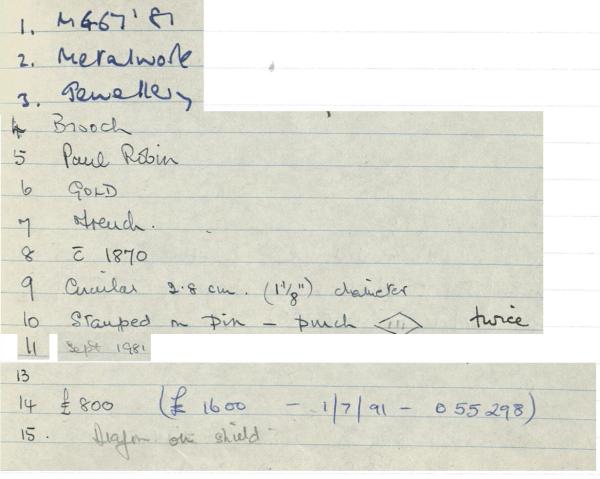 1. MG67'81
2. Metalwork
3. Jewellery
4 Brooch
5 Paul Robin
6 GOLD
7 French.
8 c̄ 1870
9 Circular 2.8 cm. (1 1/8") diameter
10 Stamped on pin - punch twice
11 Sept 1981
13
14 £800 (£ 1600 - 1/7/91 - 055298)
15. Dragon on shield